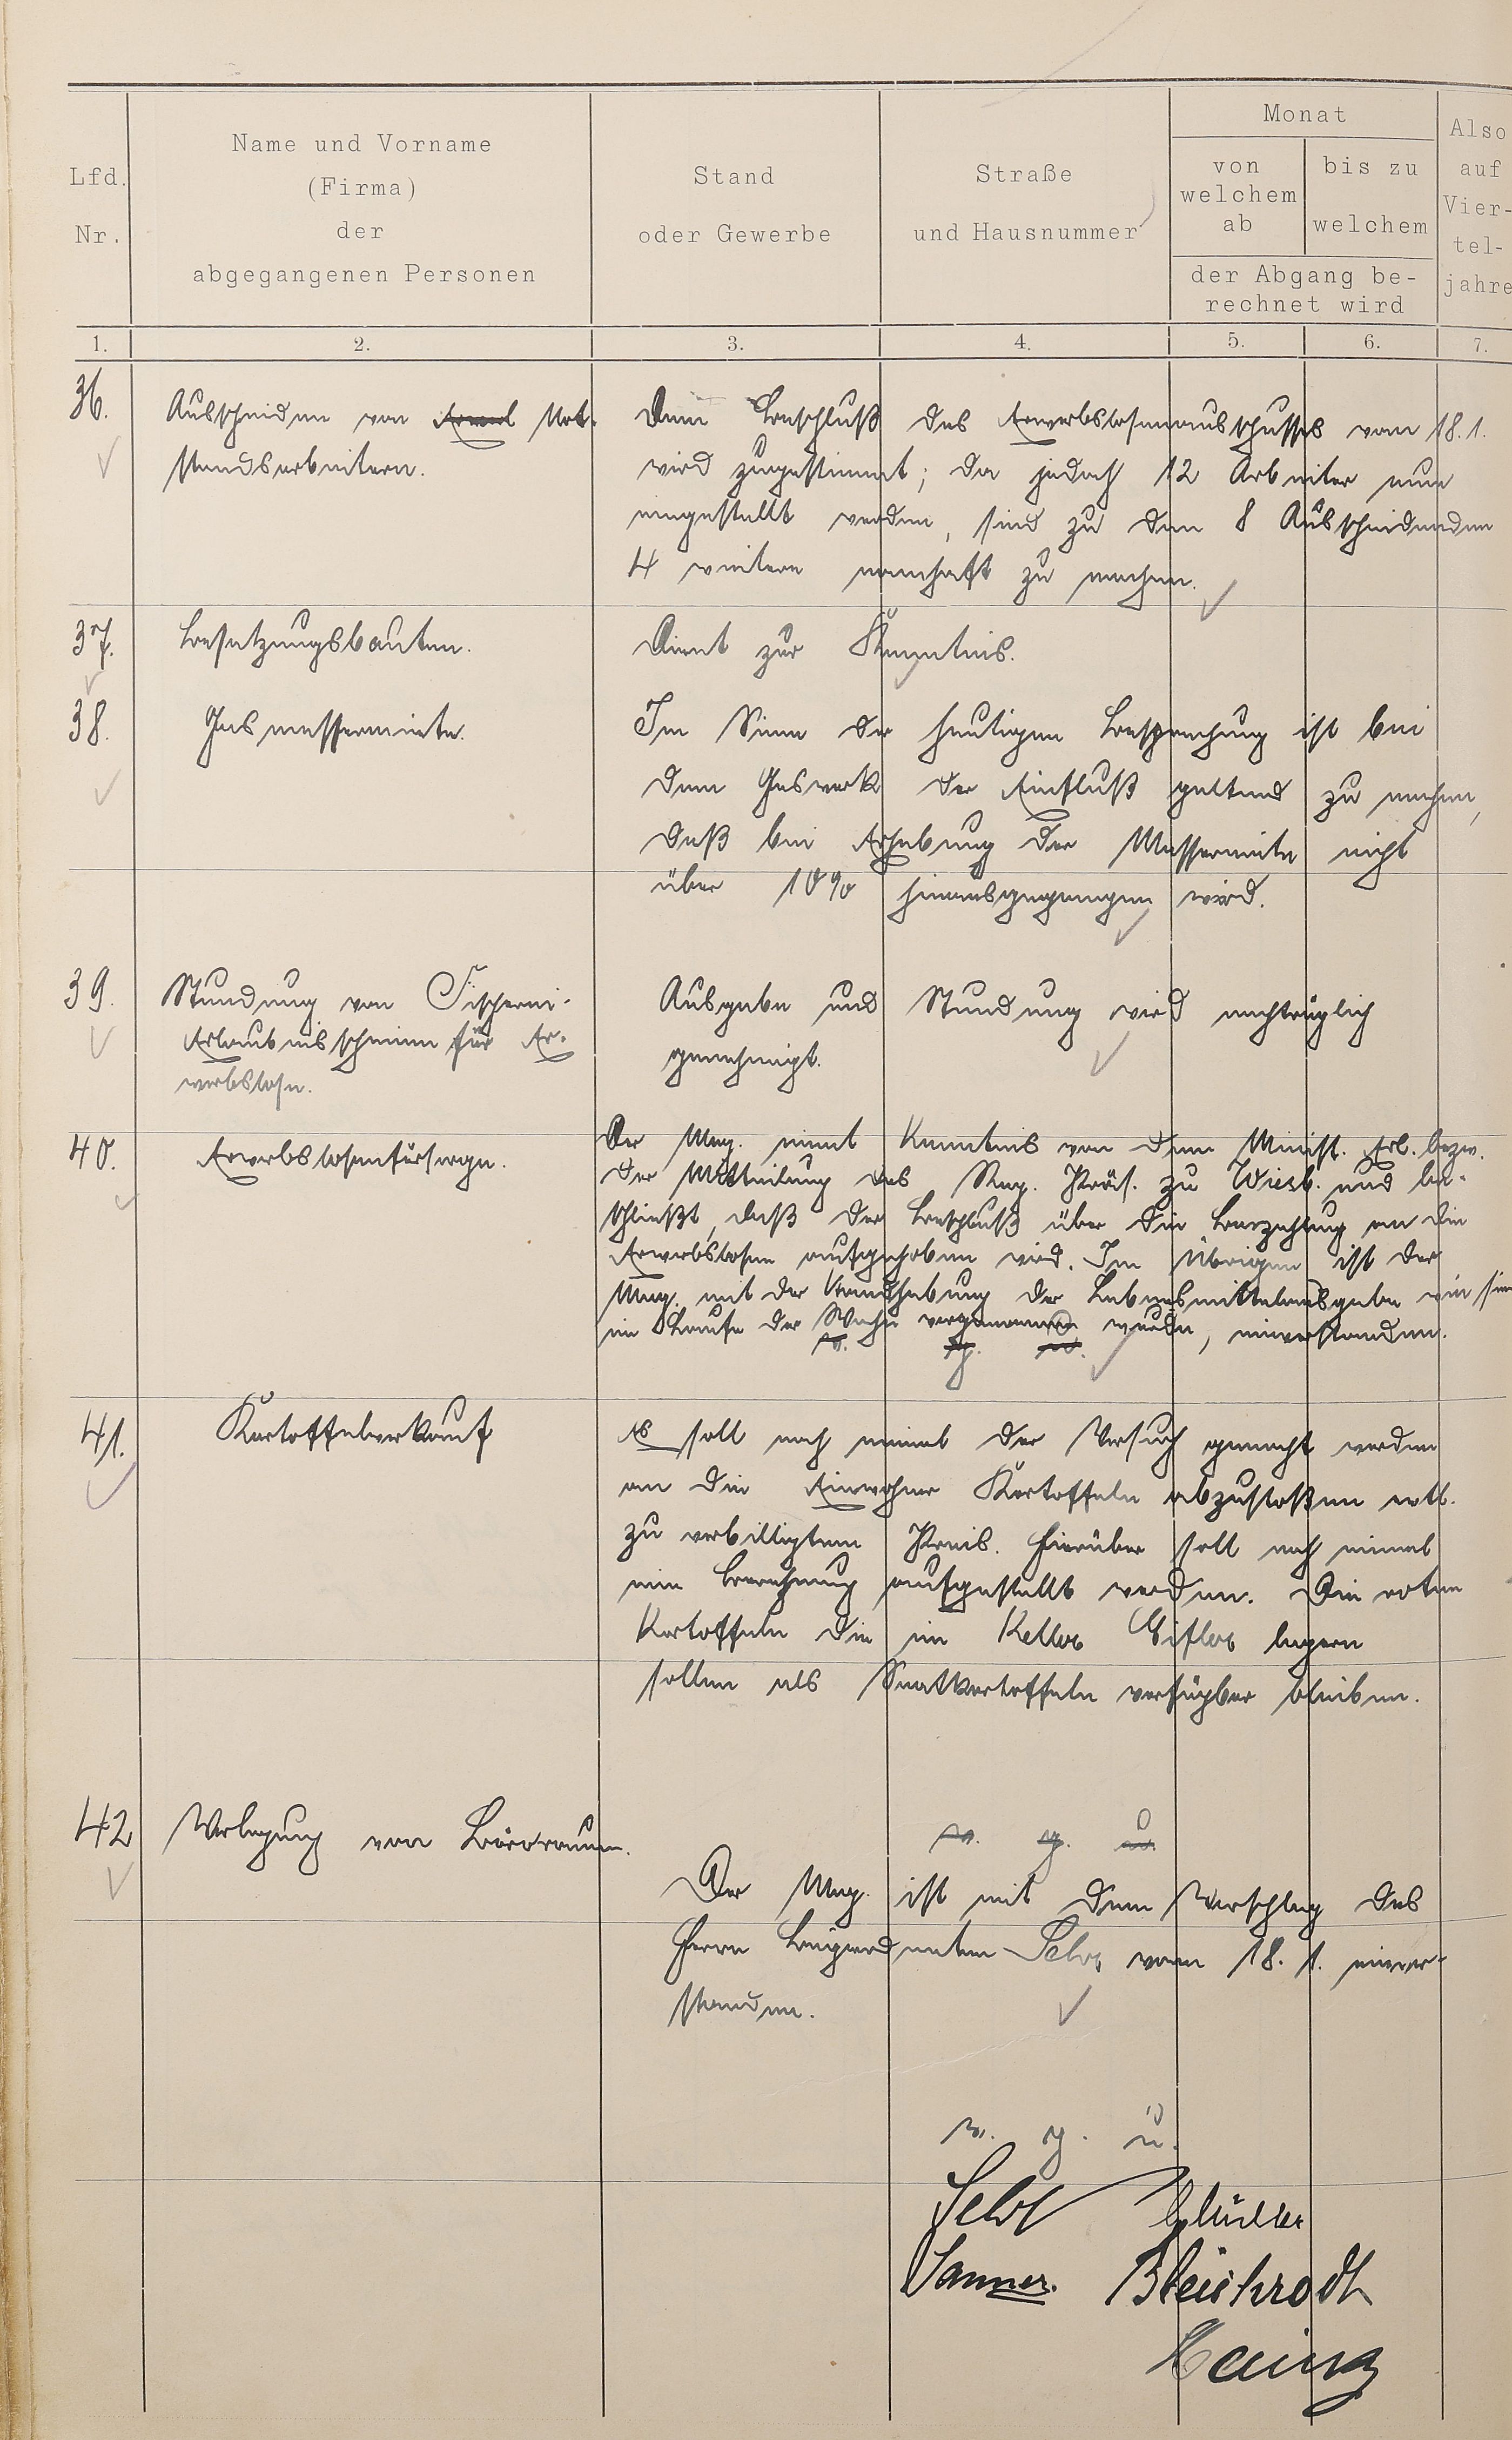 Lfd. Nr.
Name und Vorname
(Firma)
der
abgegangenen Personen
Stand
oder Gewerbe
Straße
und Hausnummer
Monat
von
welchem
ab
bis zu
welchem
der Abgang be-
rechnet wird
Also
auf
Vier-
tel-
jahre
1. 2. 3. 4. 5. 6. 7.
36.
Ausscheiden von Not-
standsarbeitern.
Dem Beschluß des Erwerbslosenausschusses vom 18.1.
wird zugestimmt; da jedoch 12 Arbeiter neu
eingestellt werden, sind zu den 8 Ausscheidenden
4 weitere namhaft zu machen.
37. Besatzungsbauten.
Dient zur Kenntnis.
38. Gasmessermiete.
Im Sinne der heutigen Besprechung ist bei
dem Gaswerk der Einfluß geltend zu machen,
daß bei Erhebung der Messermiete nicht
über 10% hinausgegangen wird.
39.
Stundung von Fischerei-
Erlaubnisscheinen für Er-
werbslose.
Ausgabe und Stundung wird nachträglich
genehmigt.
40. Erwerbslosenfürsorge.
Der Mag. nimt Kenntnis von dem Minist. Erl. bezw.
der Mitteilung des Reg. Präs. zu Wiesb. und be-
schließt, daß der Beschluß über die Barzahlung an die
Erwerbslosen aufgehoben wird. Im Übrigen ist der
Mag. mit der Handhabung der Lebensmittelausgabe wie sie
im Laufe der Woche vorgenommen wurde, einverstanden.
v. g. u.
41. Kartoffelverkauf
Es soll noch einmal der Versuch gemacht werden
an die Einwohner Kartoffeln abzustoßen evtl.
zu verbilligtem Preis. Hierüber soll noch einmal
eine Berechnung aufgestellt werden. Die roten
Kartoffeln die im Keller lagern
sollen als Saatkartoffeln verfügbar bleiben.
42 Verlegung von Büroraum.
v. g. u.
Der Mag. ist mit dem Vorschlag des
Herrn Beigeordneten vom 18. 1. einver-
standen.
v. g. u.
Müller
Sanner. Bleichrodt